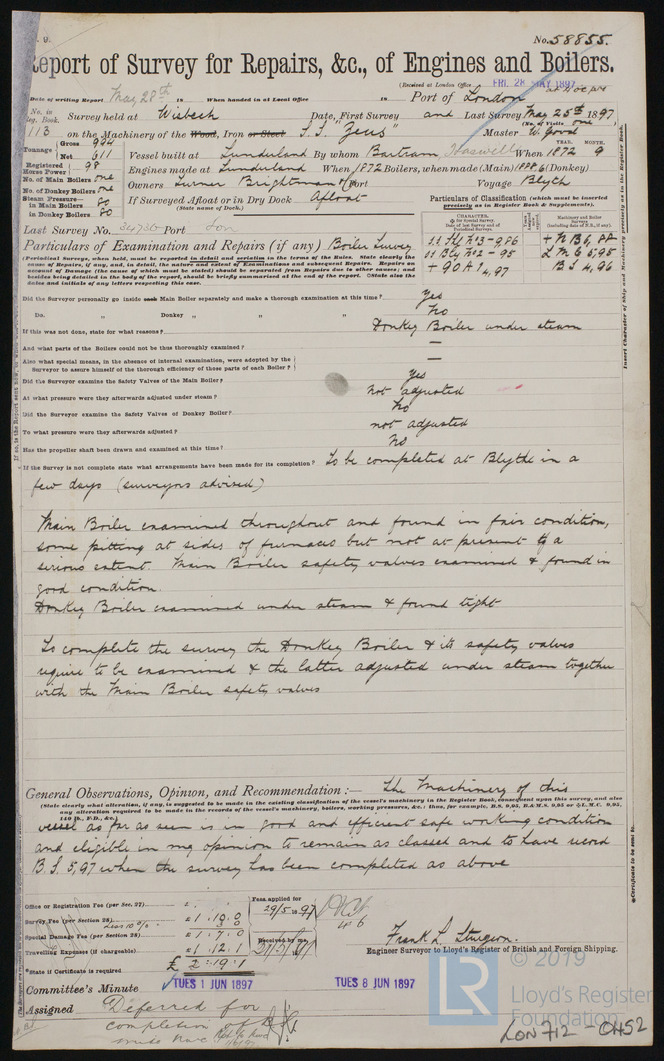 No. 58855.
Report of Survey for Repairs, &c., of Engines and Boilers.
(Received at London Office FRI. 28 MAY 1897
Date of writing Report May 28th 18 When handed in at Local Office 18 Port of London
No. in Reg. Book. Survey held at Wisbech Date, First Survey and Last Survey May 25th 1897
(No. of Visits one)
113 on the Machinery of the Wood, Iron or Steel S.S. "Zeus" Master W. Good
Tonnage Gross 934
Net 611
Vessel built at Sunderland By whom Bartram Haswell When 1872 9
Registered Horse Power 98
Engines made at Sunderland When 1872 Boilers, when made (Main) (Donkey)
No. of Main Boilers one
Owners Turner Brightman & Co Port Voyage Blyth
No. of Donkey Boilers one
Steam Pressure in Main Boilers 80
If Surveyed Afloat or in Dry Dock Afloat
(State name of Dock.)
in Donkey Boilers 80
Particulars of Classification (which must be inserted precisely as in Register Book & Supplements).
Last Survey No. 34736 Port Lon
Particulars of Examination and Repairs (if any) Boiler Survey
+ 90 A 1 4,97
B S 4,96
(Periodical Surveys, when held, must be reported in detail and seriatim in the terms of the Rules. State clearly the
cause of Repairs, if any, and, in detail, the nature and extent of Examinations and subsequent Repairs. Repairs on
account of Damage (the cause of which must be stated) should be separated from Repairs due to other causes; and
besides being detailed in the body of the report, should be briefly summarised at the end of the report. State also the
dates and initials of any letters respecting this case.
Did the Surveyor personally go inside each Main Boiler separately and make a thorough examination at this time? yes
Do. " Donkey " " " No
If this was not done, state for what reasons? Donkey Boiler under steam
And what parts of the Boilers could not be thus thoroughly examined? —
Also what special means, in the absence of internal examination, were adopted by the
Surveyor to assure himself of the thorough efficiency of those parts of each Boiler? —
Did the Surveyor examine the Safety Valves of the Main Boiler? yes
At what pressure were they afterwards adjusted under steam? not adjusted
Did the Surveyor examine the Safety Valves of Donkey Boiler? No
To what pressure were they afterwards adjusted? not adjusted
Has the propeller shaft been drawn and examined at this time? No
If the Survey is not complete state what arrangements have been made for its completion? To be completed at Blythe in a
few days (surveyors advised)
Main Boiler examined throughout and found in fair condition,
some pitting at sides of furnaces but not at present of a
serious extent. Main Boiler safety valves examined & found in
good condition.
Donkey Boiler examined under steam & found tight
To complete the survey the Donkey Boiler & its safety valves
require to be examined & the latter adjusted under steam together
with the Main Boiler safety valves
General Observations, Opinion, and Recommendation:— The Machinery of this
(State clearly what alteration, if any, is suggested to be made in the existing classification of the vessel's machinery in the Register Book, consequent upon this survey, and also
any alteration required to be made in the records of the vessel's machinery, boilers, working pressures, &c.: thus, for example, B.S. 9,95, B.&M.S. 9,95 or L.M.C. 9,95,
140 lb., F.D., &c.)
vessel as far as seen is in good and efficient safe working condition
and eligible in my opinion to remain as classed and to have record
B.S. 5,97 when the survey has been completed as above
Office or Registration Fee (per Sec. 27)
Survey Fee (per Section 28)
Special Damage Fee (per Section 28)
Travelling Expenses (if chargeable) £ 1 : 12 : 1
£ 2 : 19 : 1
Fees applied for 29/5 1897
Received by me,
*State if Certificate is required
Frank L. Sturgeon.
Engineer Surveyor to Lloyd's Register of British and Foreign Shipping.
Committee's Minute TUES 1 JUN 1897 TUES 8 JUN 1897
Assigned Deferred for
completion of
Insert Character of Ship and Machinery precisely as in the Register Book.
*Certificate to be sent to
© 2019
LR Lloyd's Register
Foundation
LON 712 - 0452